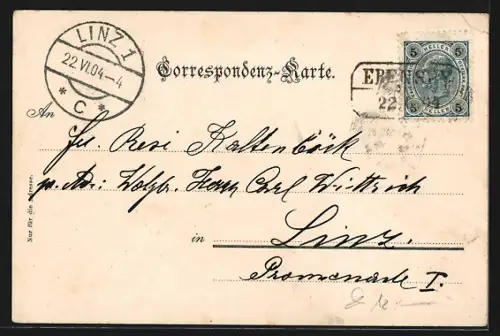 LINZ 1
22.VI.04-4
* C *
Correspondenz-Karte.
5 HELLER 5
EBENSEE
22.
5 HELLER 5
An
Resi Kaltenböck
Carl Wittrich
in Linz
Promenade I.
Nur für die Adresse.